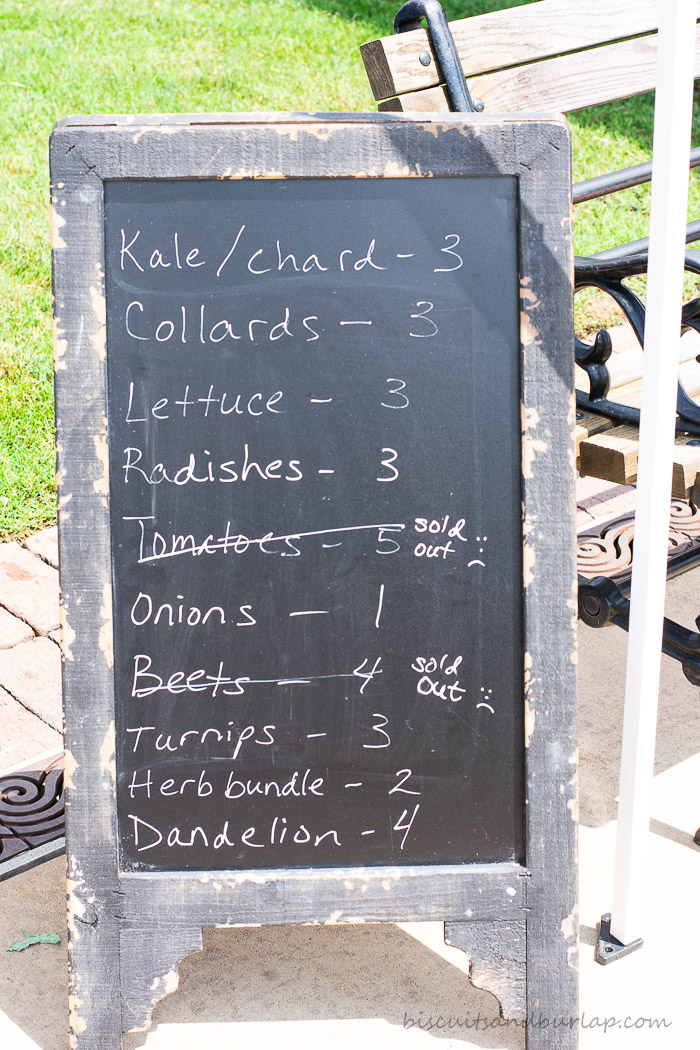 Kale/chard - 3
Collards - 3
Lettuce - 3
Radishes - 3
Tomatoes - 5 sold out :(
Onions - 1
Beets - 4 sold out :(
Turnips - 3
Herb bundle - 2
Dandelion - 4
biscuitsandburlap.com